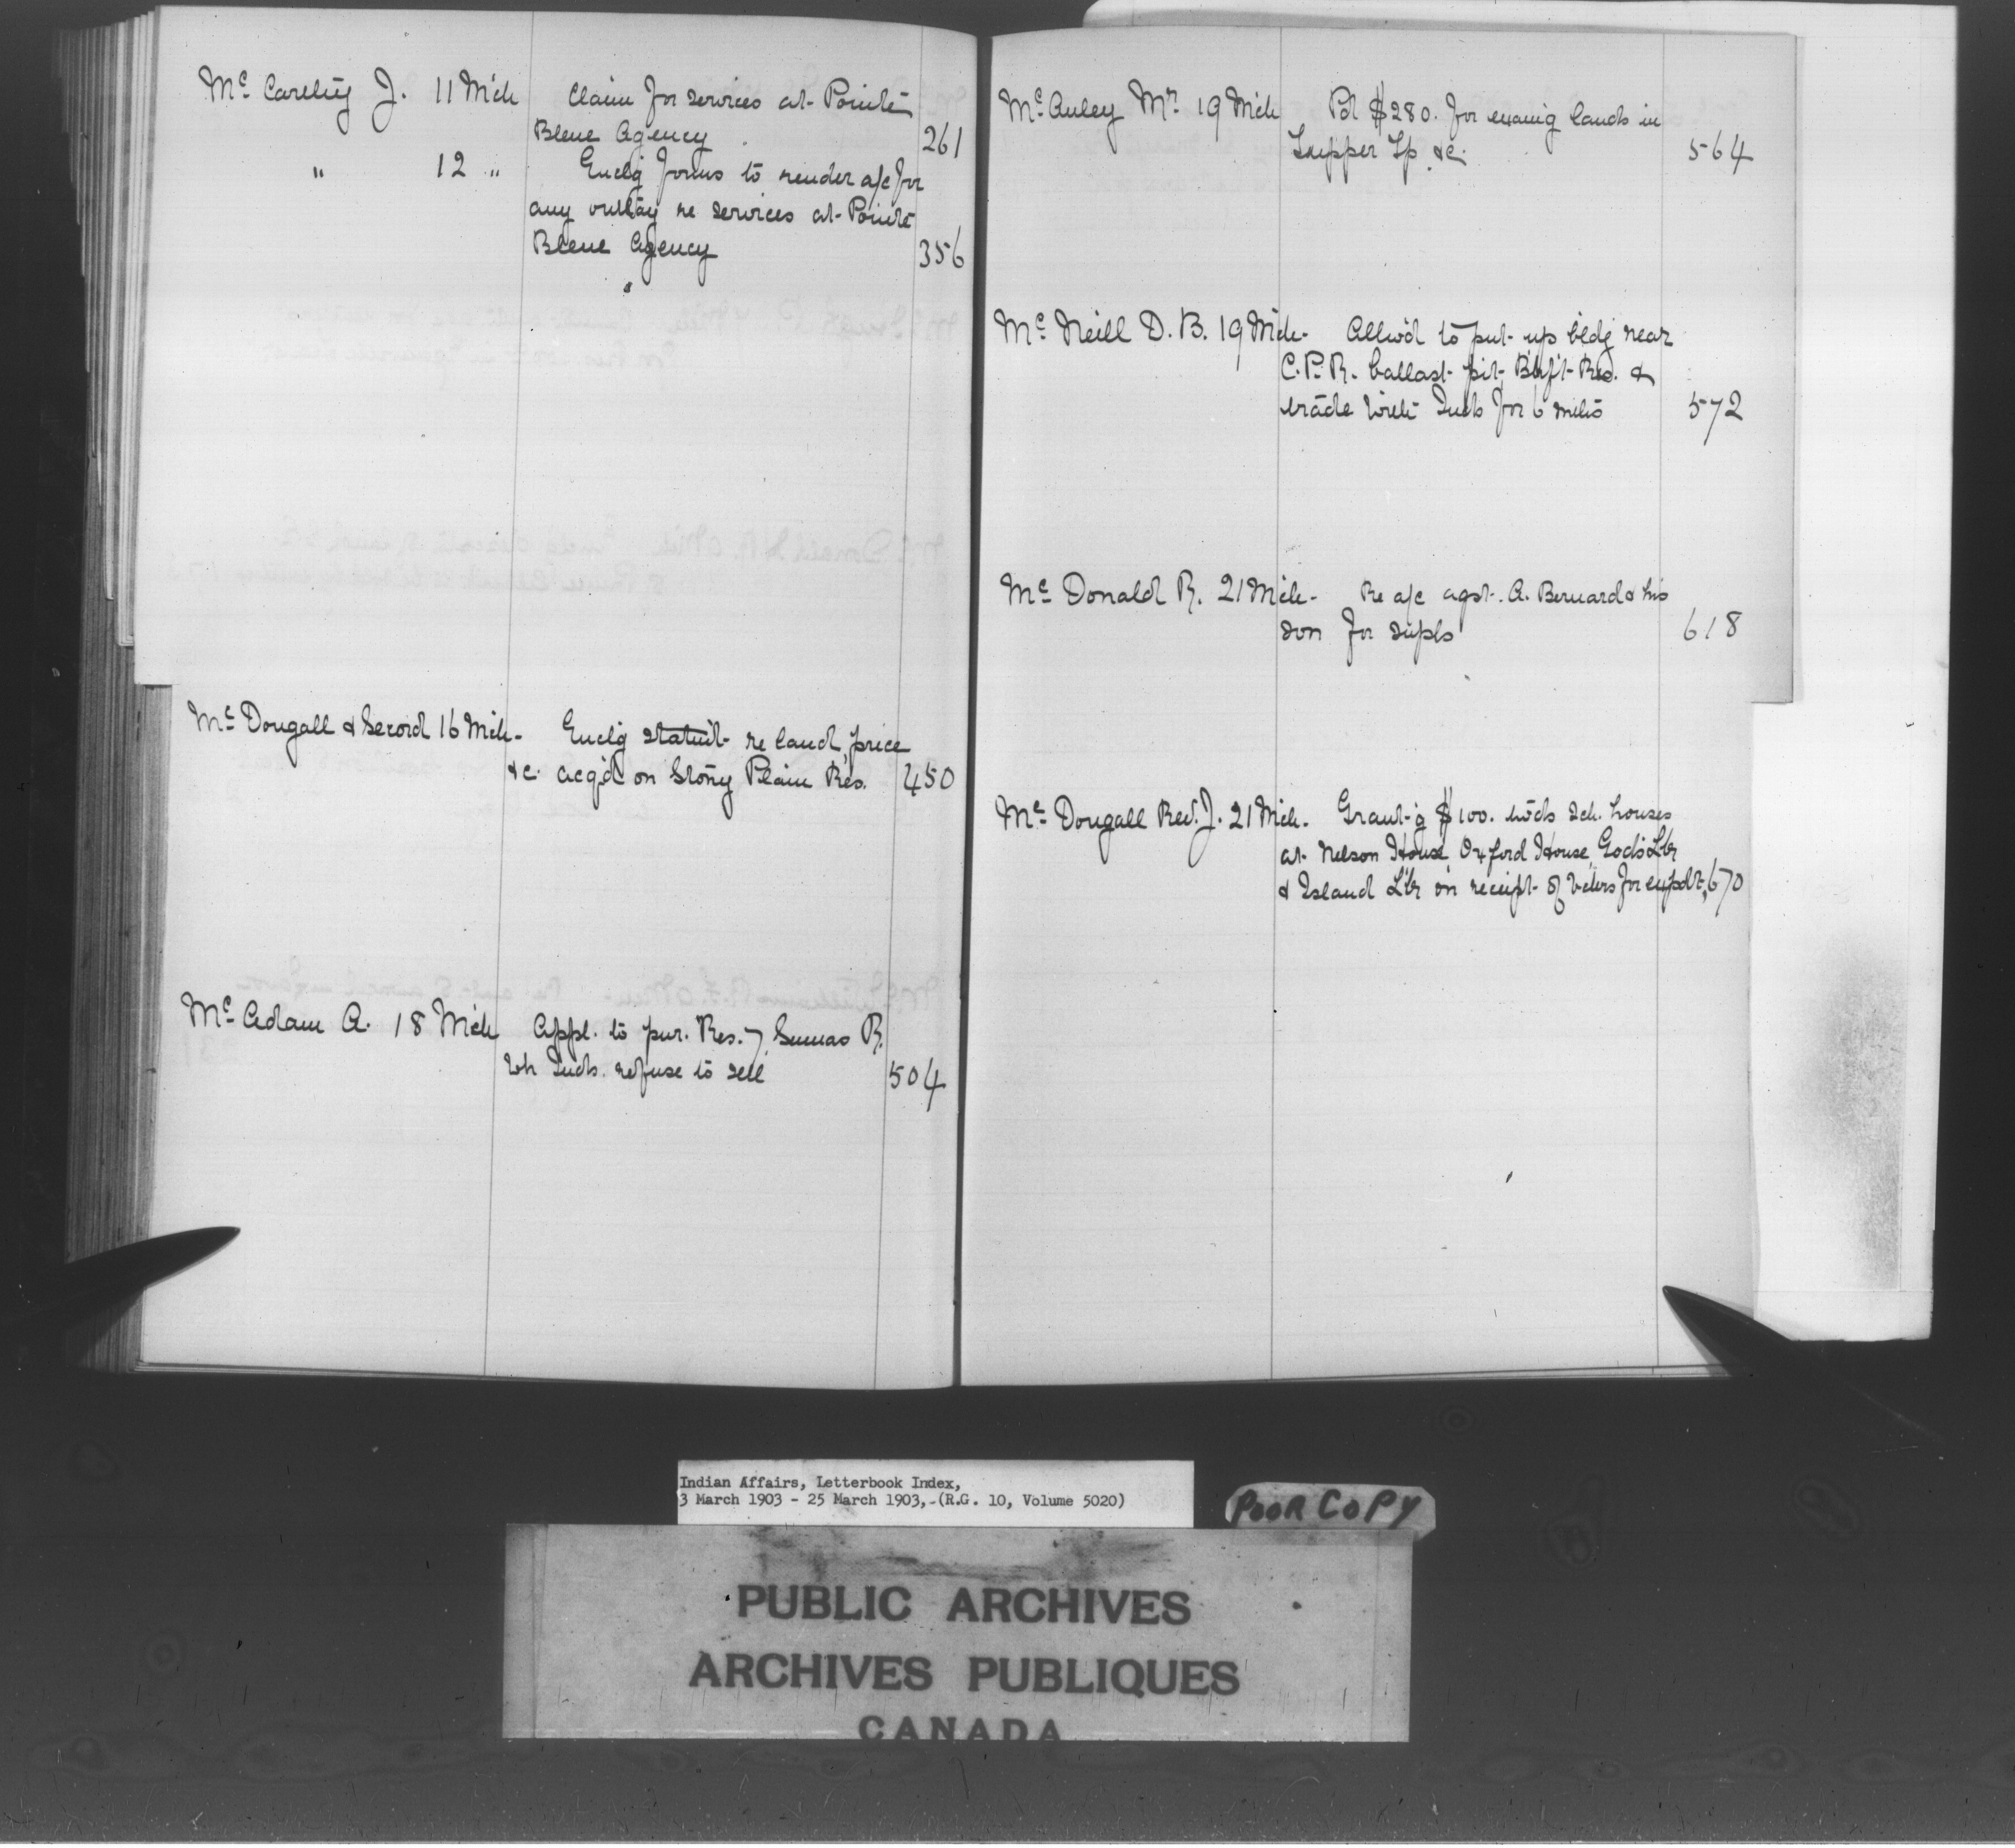 Mc Carthy J. 11 Mch Claim for services at Pointe
Bleue Agency 261
" 12 " Enclg forms to render a/c for
any outlay re services at Pointe
Bleue Agency 356
Mc Dougall & Secord 16 Mch Enclg statmt re land, price
&c. acq'd on Stony Plain Res. 450
Mc Adam A. 18 Mch Appl. to pur. Res. 7 Sumas R.
wh Inds. refuse to sell 504
Mc Auley Mr. 19 Mch Pd $280. for examg lands in
Tupper Tp &c. 564
Mc Neill D. B. 19 Mch Allw'd to put up bldg near
C.P.R. ballast pit, Blkft Res. &
trade with Inds for 6 mths 572
Mc Donald R. 21 Mch Re a/c agst. A. Bernard & his
son for supls 618
Mc Dougall Rev. J. 21 Mch. Grant-g $100. twds sch. houses
at Nelson House, Oxford House, God's Lk
& Island Lk on receipt of vchrs for expdt. 670
Indian Affairs, Letterbook Index,
3 March 1903 - 25 March 1903, (R.G. 10, Volume 5020)
POOR COPY
PUBLIC ARCHIVES
ARCHIVES PUBLIQUES
CANADA